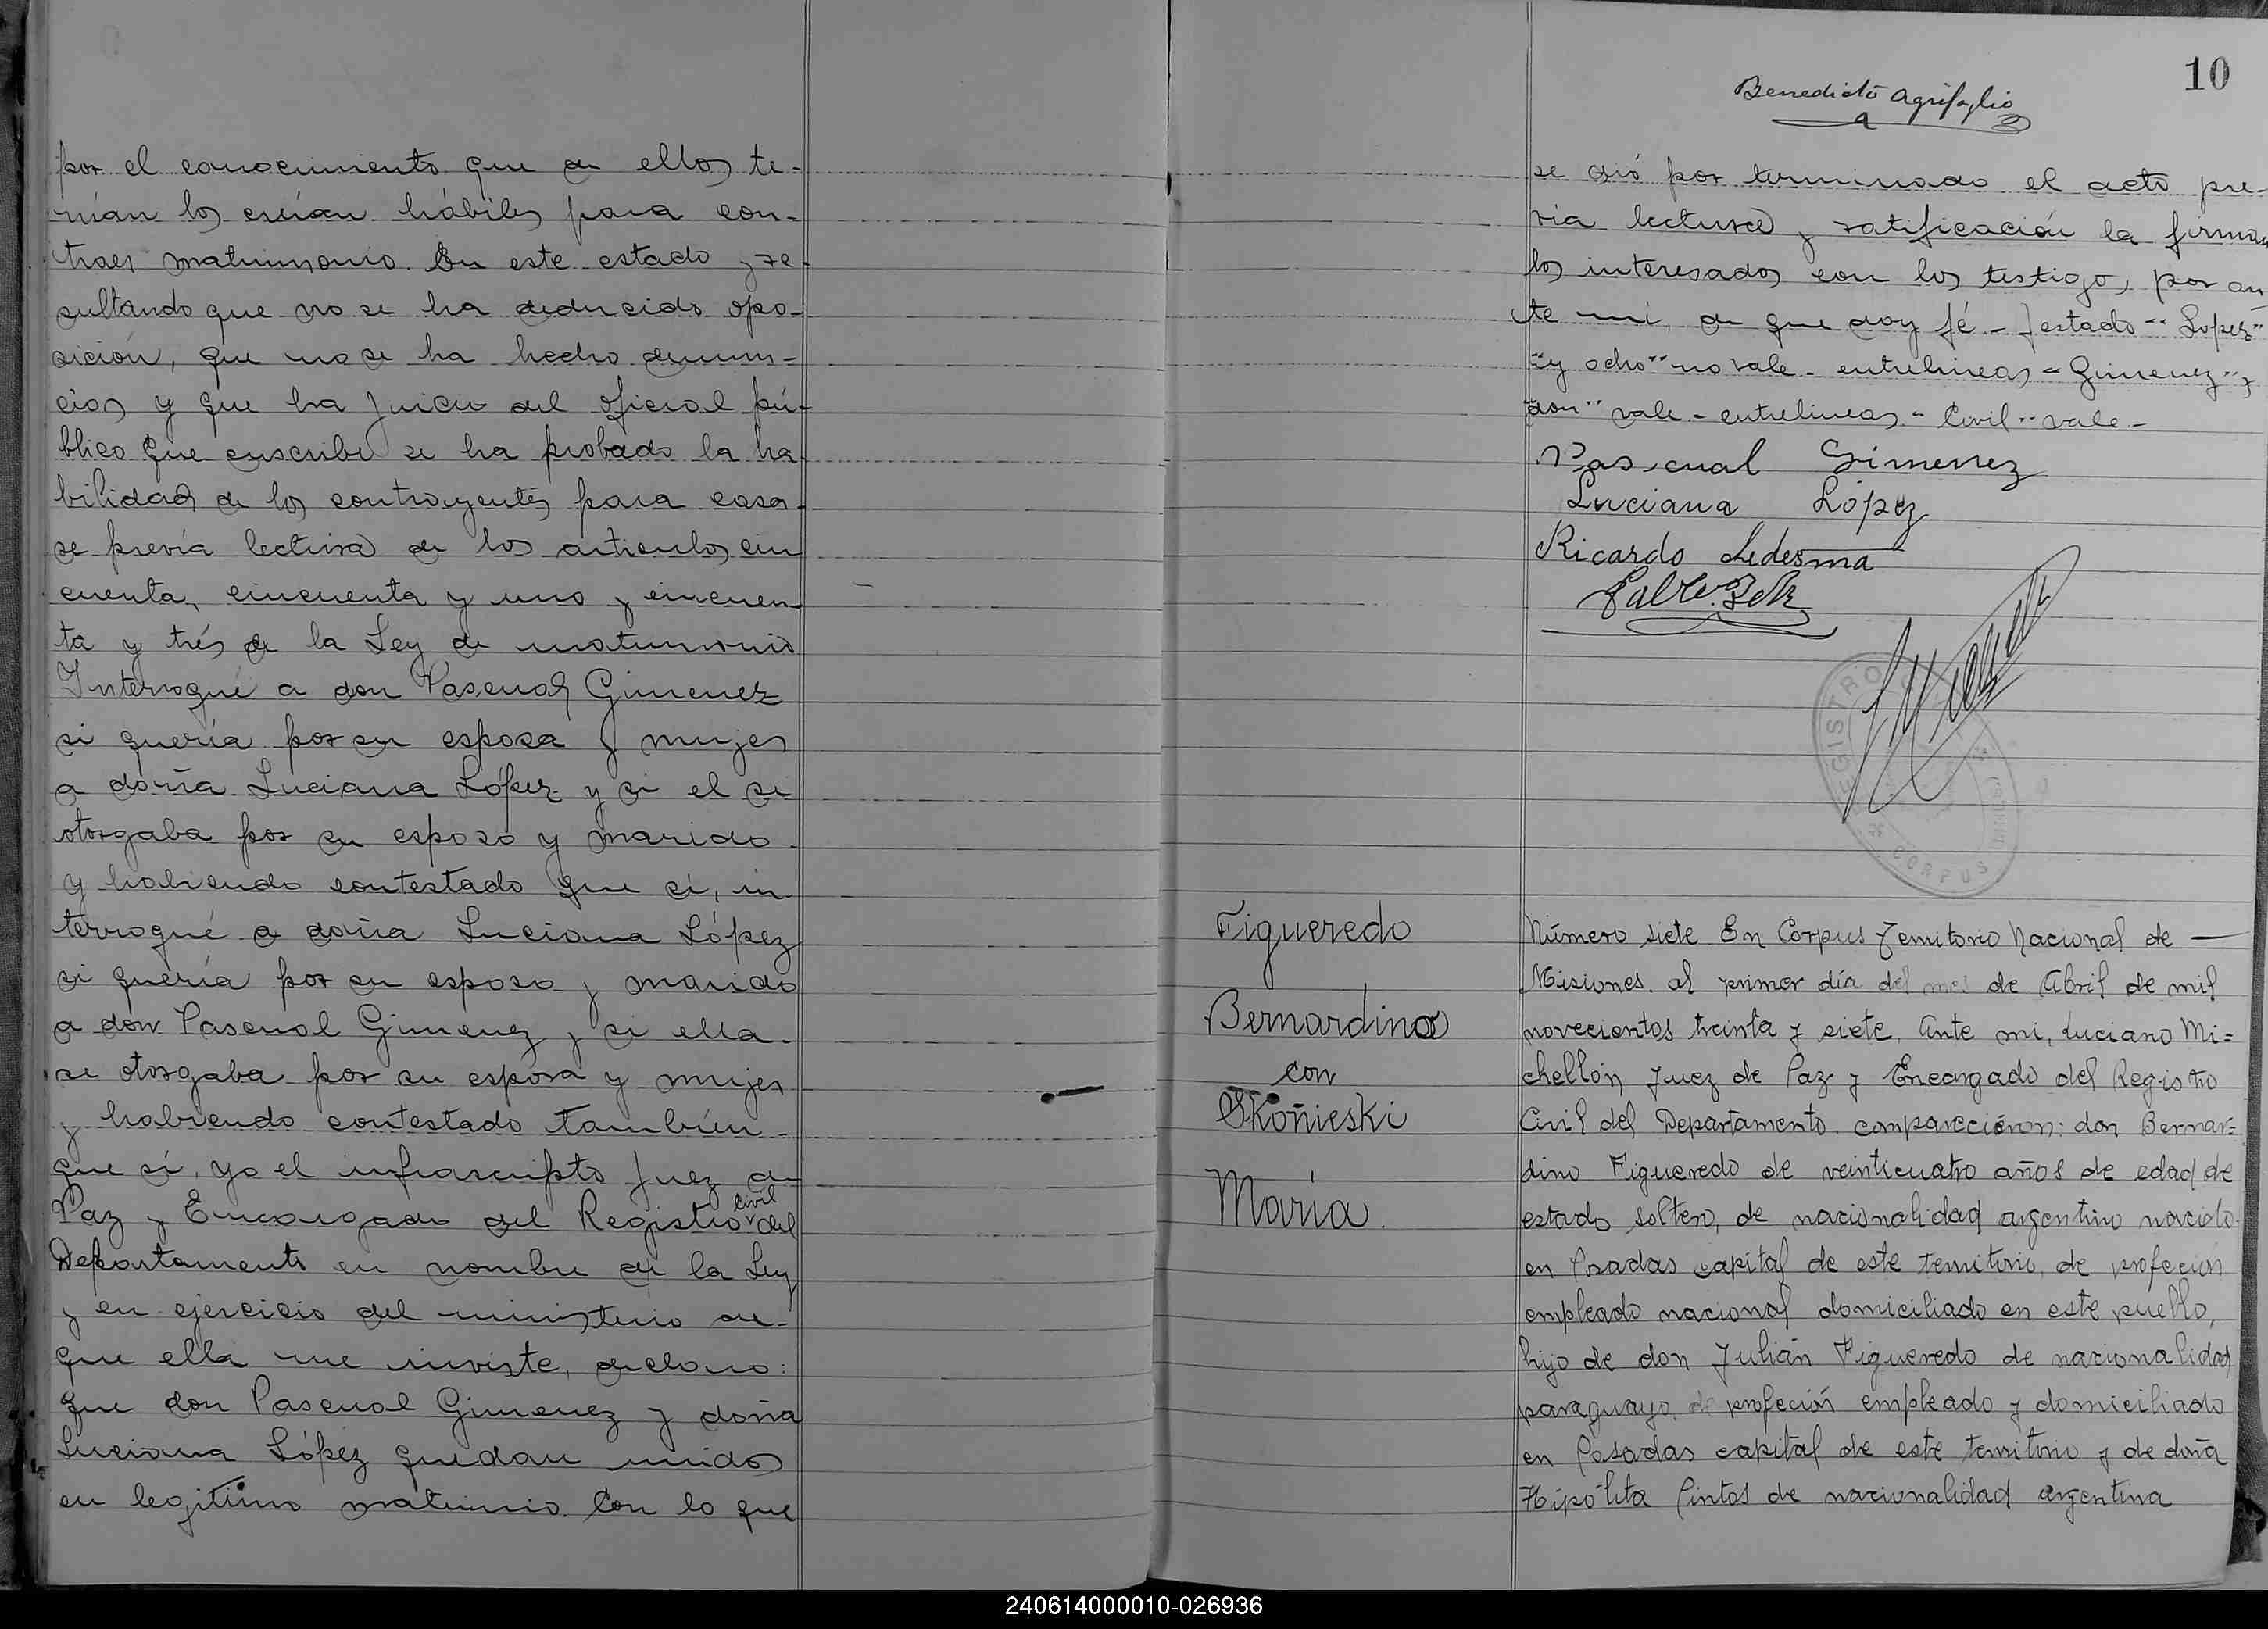 por el conocimiento que de ellos te-
nían los creían hábiles para con-
traer matrimonio. En este estado y re-
sultando que no se ha deducido opo-
sición, que no se ha hecho denun-
cias y que ha juicio del oficial pú-
blico que suscribe se ha probado la ha-
bilidad de los contrayentes para casar-
se previa lectura de los artículos cin
cuenta, cincuenta y uno y cincuen-
ta y trés de la Ley de matrimonio
Interrogué a don Pascual Gimenez
si quería por su esposa y mujer
a doña Luciana López y si el se
otorgaba por su esposo y marido
y habiendo contestado que sí, in
terrogué a doña Luciana López
si quería por su esposo y marido
a don Pascual Gimenez y si ella
se otorgaba por su esposa y mujer
y habiendo contestado también
que sí, yo el infrascripto Juez de
Paz y Encargado del Registro civil del
Departamento en nombre de la Ley
y en ejercicio del ministerio de
que ella me inviste, declaro:
que don Pascual Gimenez y doña
Luciana López quedan unidos
en legítimo matrimio. Con lo que
10
Benedicto Agrifoglio
se dió por terminado el acto pre-
via lectura y ratificación la firman
los interesados con los testigos, por an
te mi, de que doy fé - Testado "Lopez"
"y ocho" no vale - entrelineas "Gimenez" y
"don" vale - entrelineas "Civil" vale -
Pascual Gimenez
Luciana López
Ricardo Ledesma
REGISTRO
CORPUS
Figueredo
Bernardino
con
Skoñieski
María.
Número siete En Corpus Territorio Nacional de
Misiones. al primer día del mes de Abril de mil
novecientos treinta y siete. Ante mi, Luciano Mi=
chellón, Juez de Paz y Encargado del Registro
Civil del Departamento. comparecieron: don Bernar=
dino Figueredo de veinticuatro años de edad de
estado soltero, de nacionalidad argentino nacido
en Posadas capital de este territorio, de profeción
empleado nacional domiciliado en este pueblo,
hijo de don Julián Figueredo de nacionalidad
paraguayo, de profeción empleado y domiciliado
en Posadas capital de este territorio y de doña
Hipólita Pintos de nacionalidad argentina
240614000010-026936